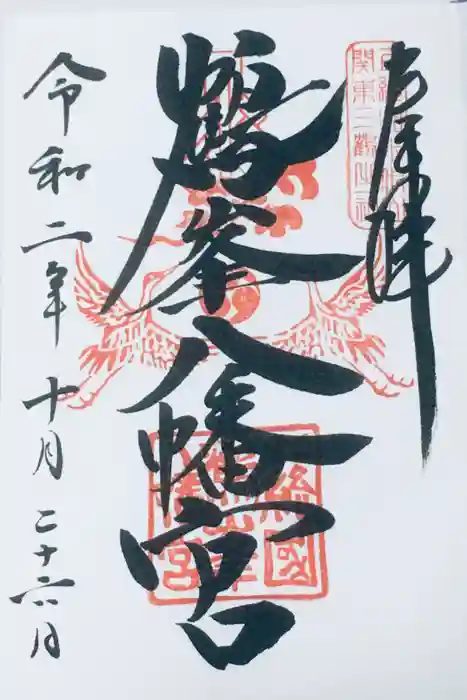 奉拝
関東三
鶴峯八幡宮
総國
鶴峯
八幡宮
令和二年十月二十六日